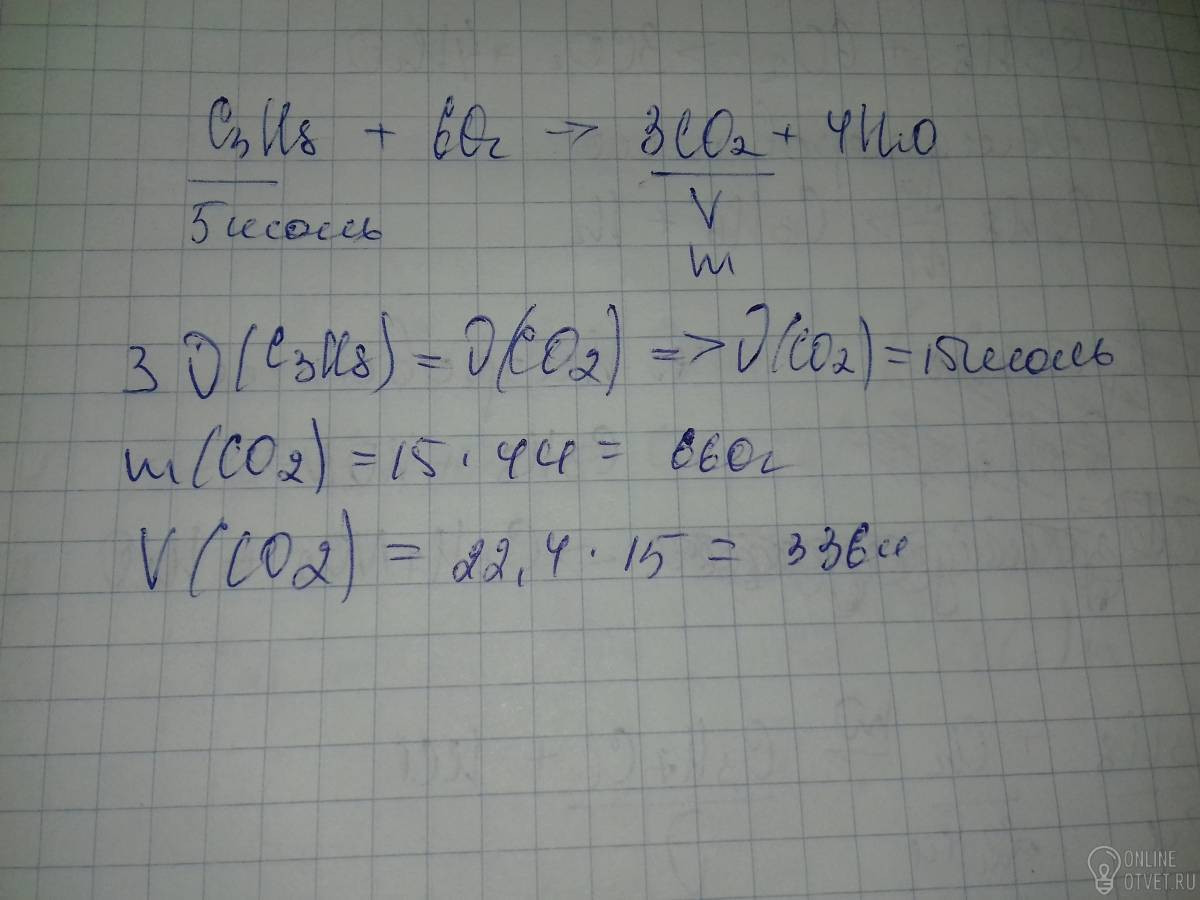 C₃H₈ + 6O₂ → 3CO₂ + 4H₂O
5 моль V
m
3 ν(C₃H₈) = ν(CO₂) => ν(CO₂) = 15 моль
m(CO₂) = 15 · 44 = 660г
V(CO₂) = 22,4 · 15 = 336л
ONLINE
OTVET.RU